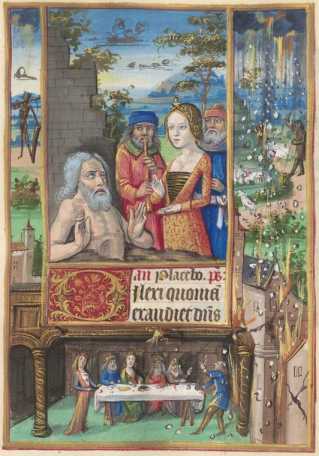 an Placebo. ps:
Dilexi quoniã
exaudiet dñs